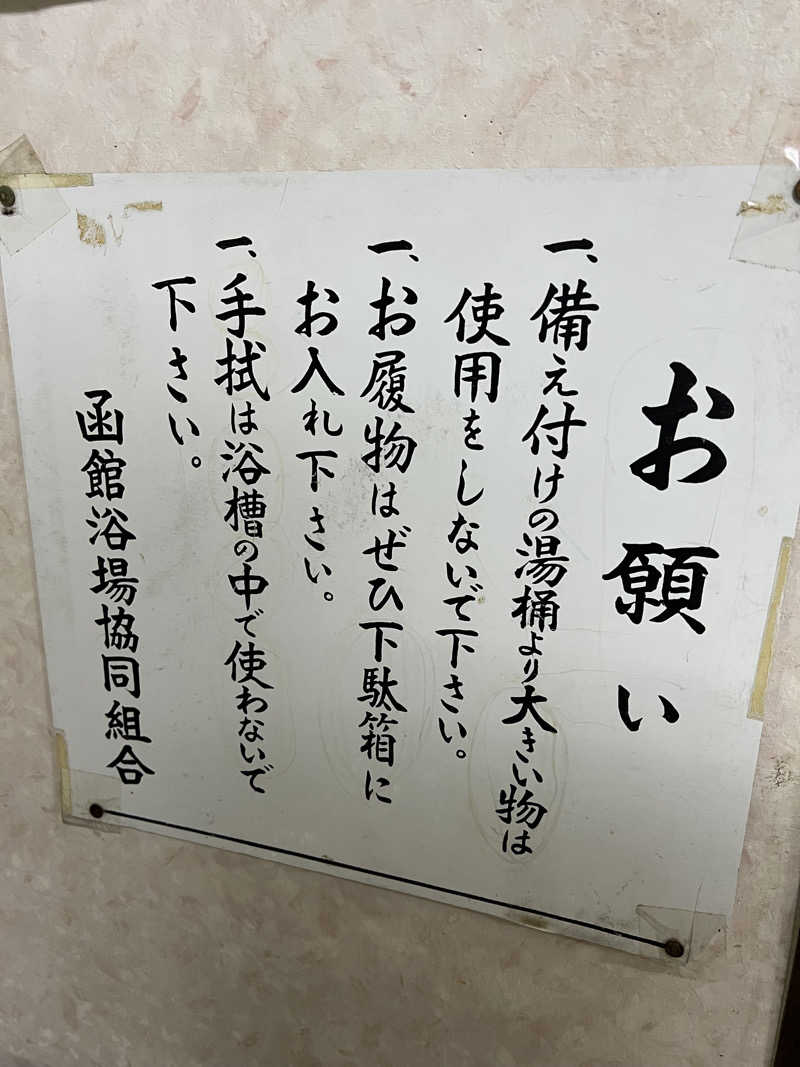 お願い
一、備え付けの湯桶より大きい物は
使用をしないで下さい。
一、お履物はぜひ下駄箱に
お入れ下さい。
一、手拭は浴槽の中で使わないで
下さい。
函館浴場協同組合